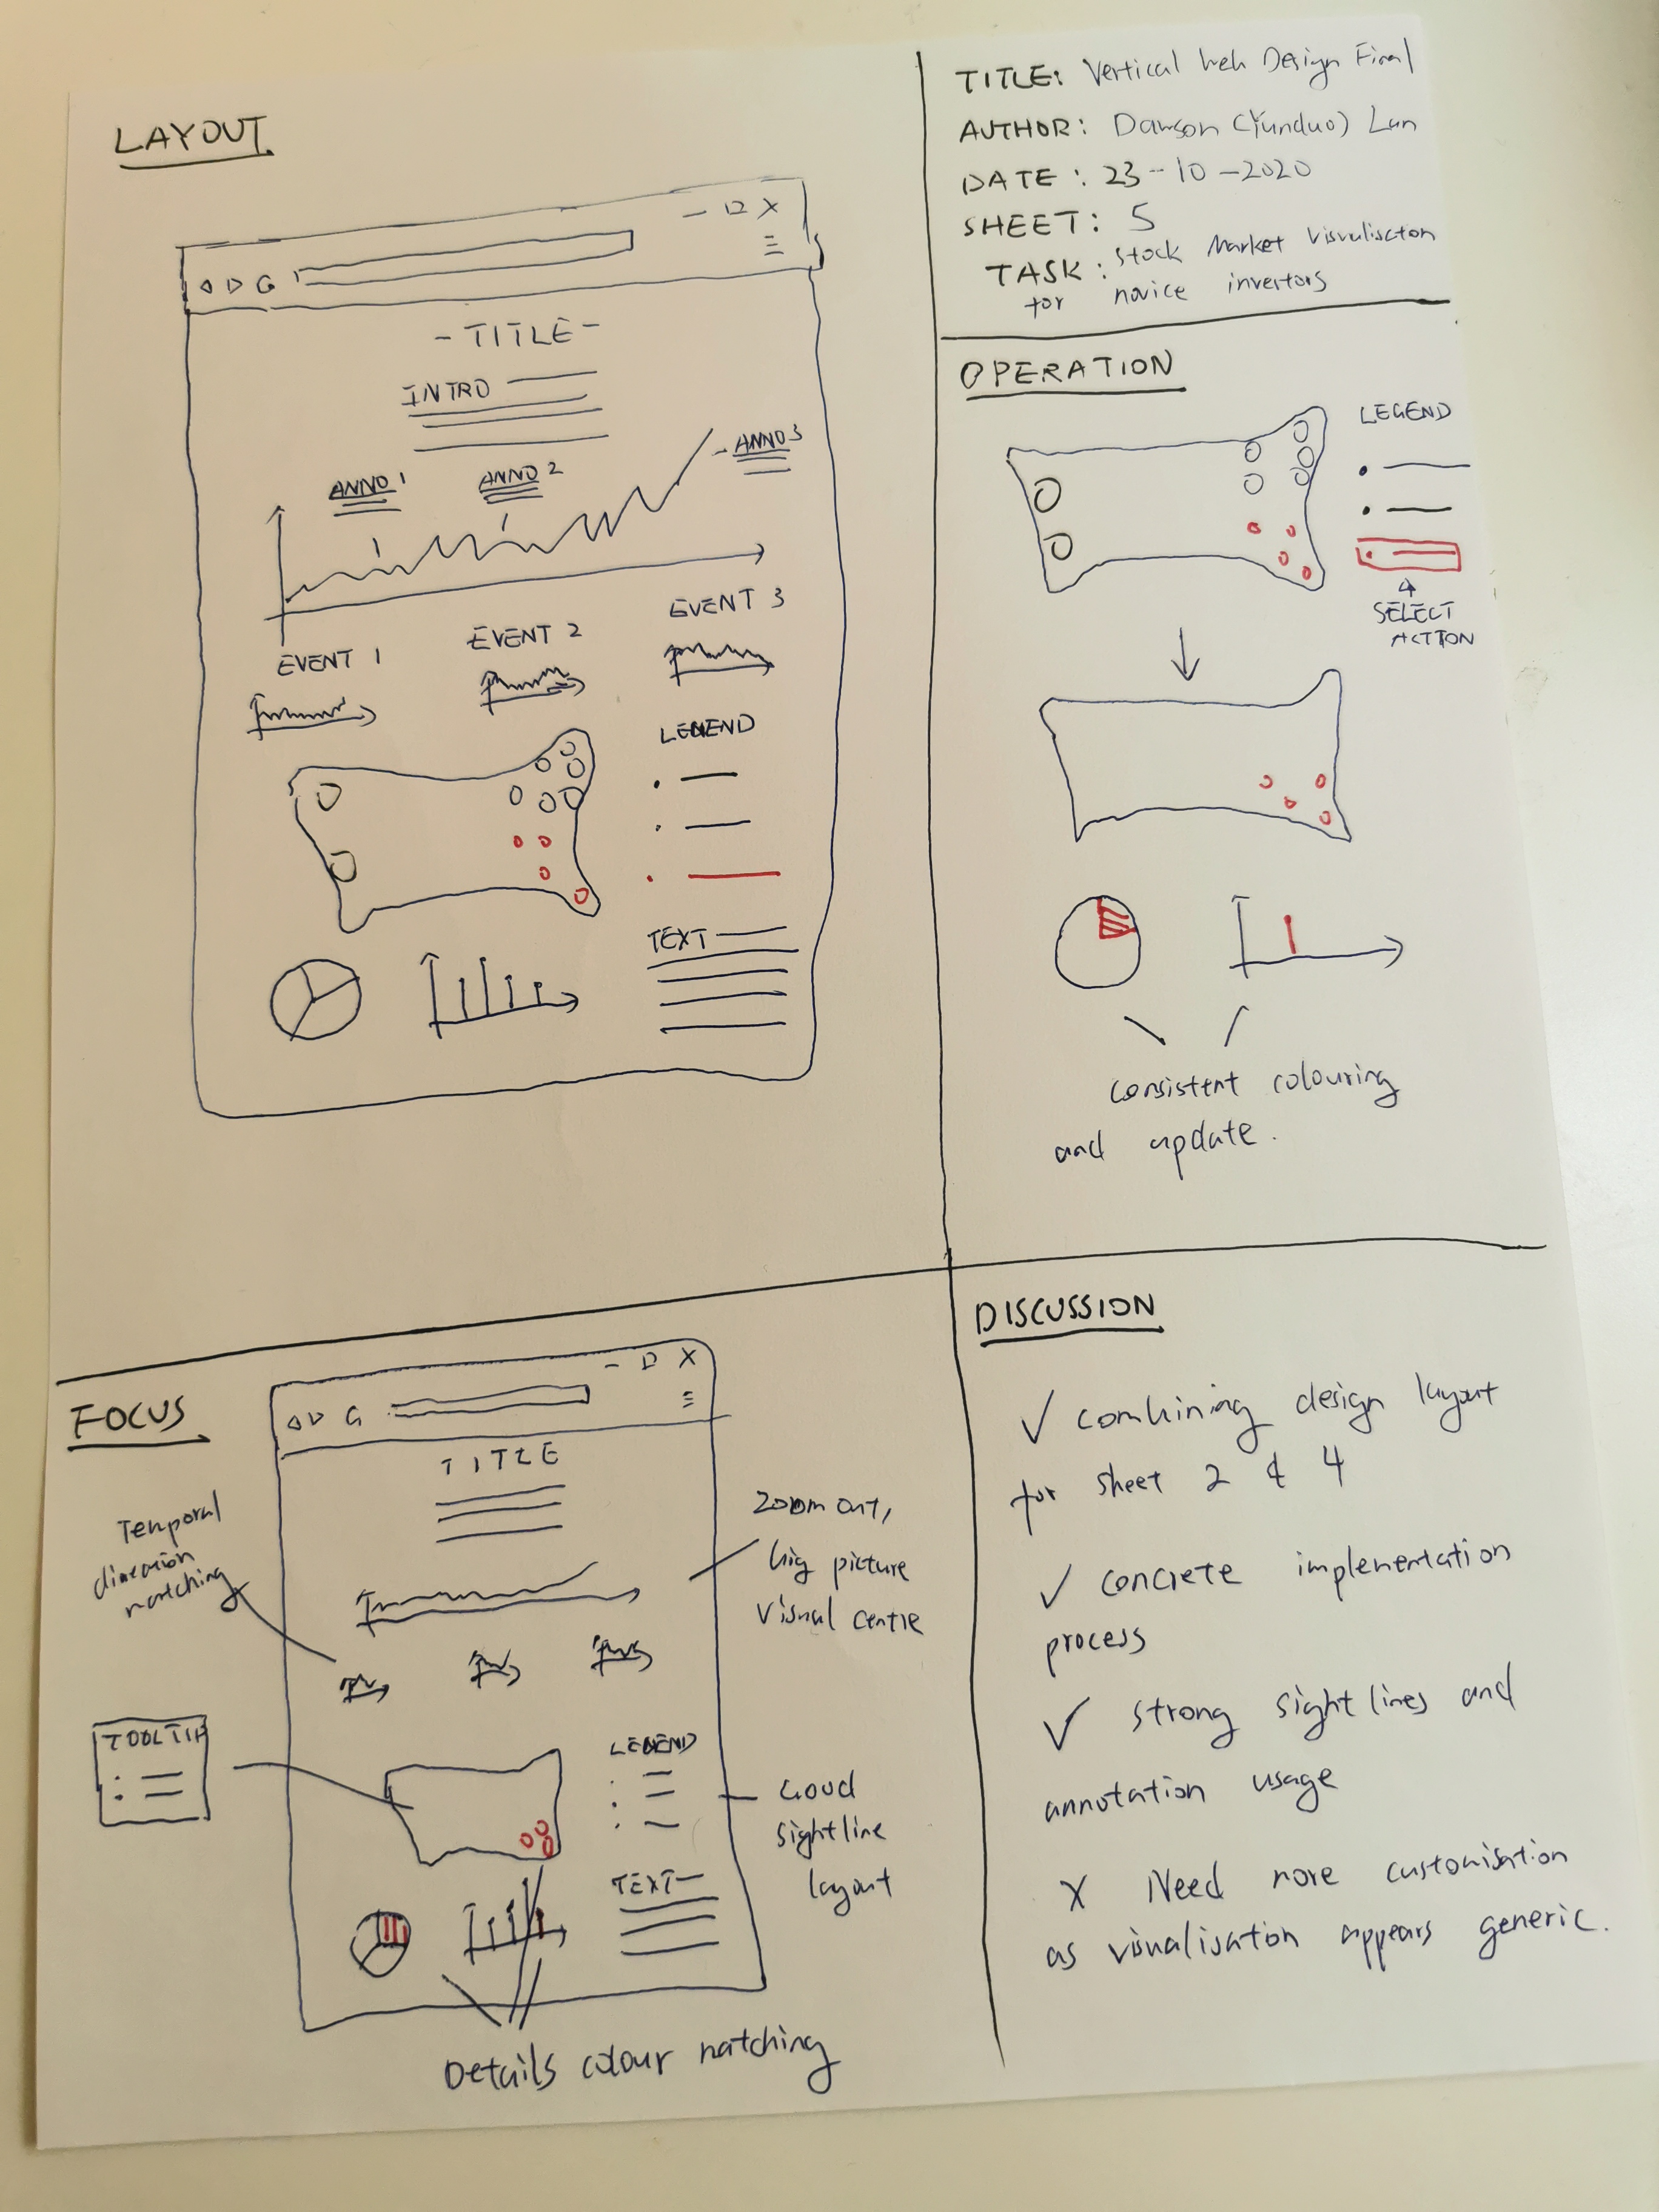 LAYOUT
- TITLE -
INTRO
ANNO 1
ANNO 2
ANNO 3
EVENT 1
EVENT 2
EVENT 3
LEGEND
TEXT
TITLE: Vertical Web Design Final
AUTHOR: Dawson (Yunduo) Lan
DATE: 23-10-2020
SHEET: 5
TASK: Stock Market Visualisation
for novice investors
OPERATION
LEGEND
SELECT
ACTION
consistent colouring
and update.
FOCUS
TITLE
Temporal
dimension
matching
Zoom out,
big picture
visual centre
TOOLTIP
LEGEND
Good
sightline
layout
TEXT
Details colour matching
DISCUSSION
✓ combining design layout
for sheet 2 & 4
✓ concrete implementation
process
✓ strong sightlines and
annotation usage
X Need more customisation
as visualisation appears generic.